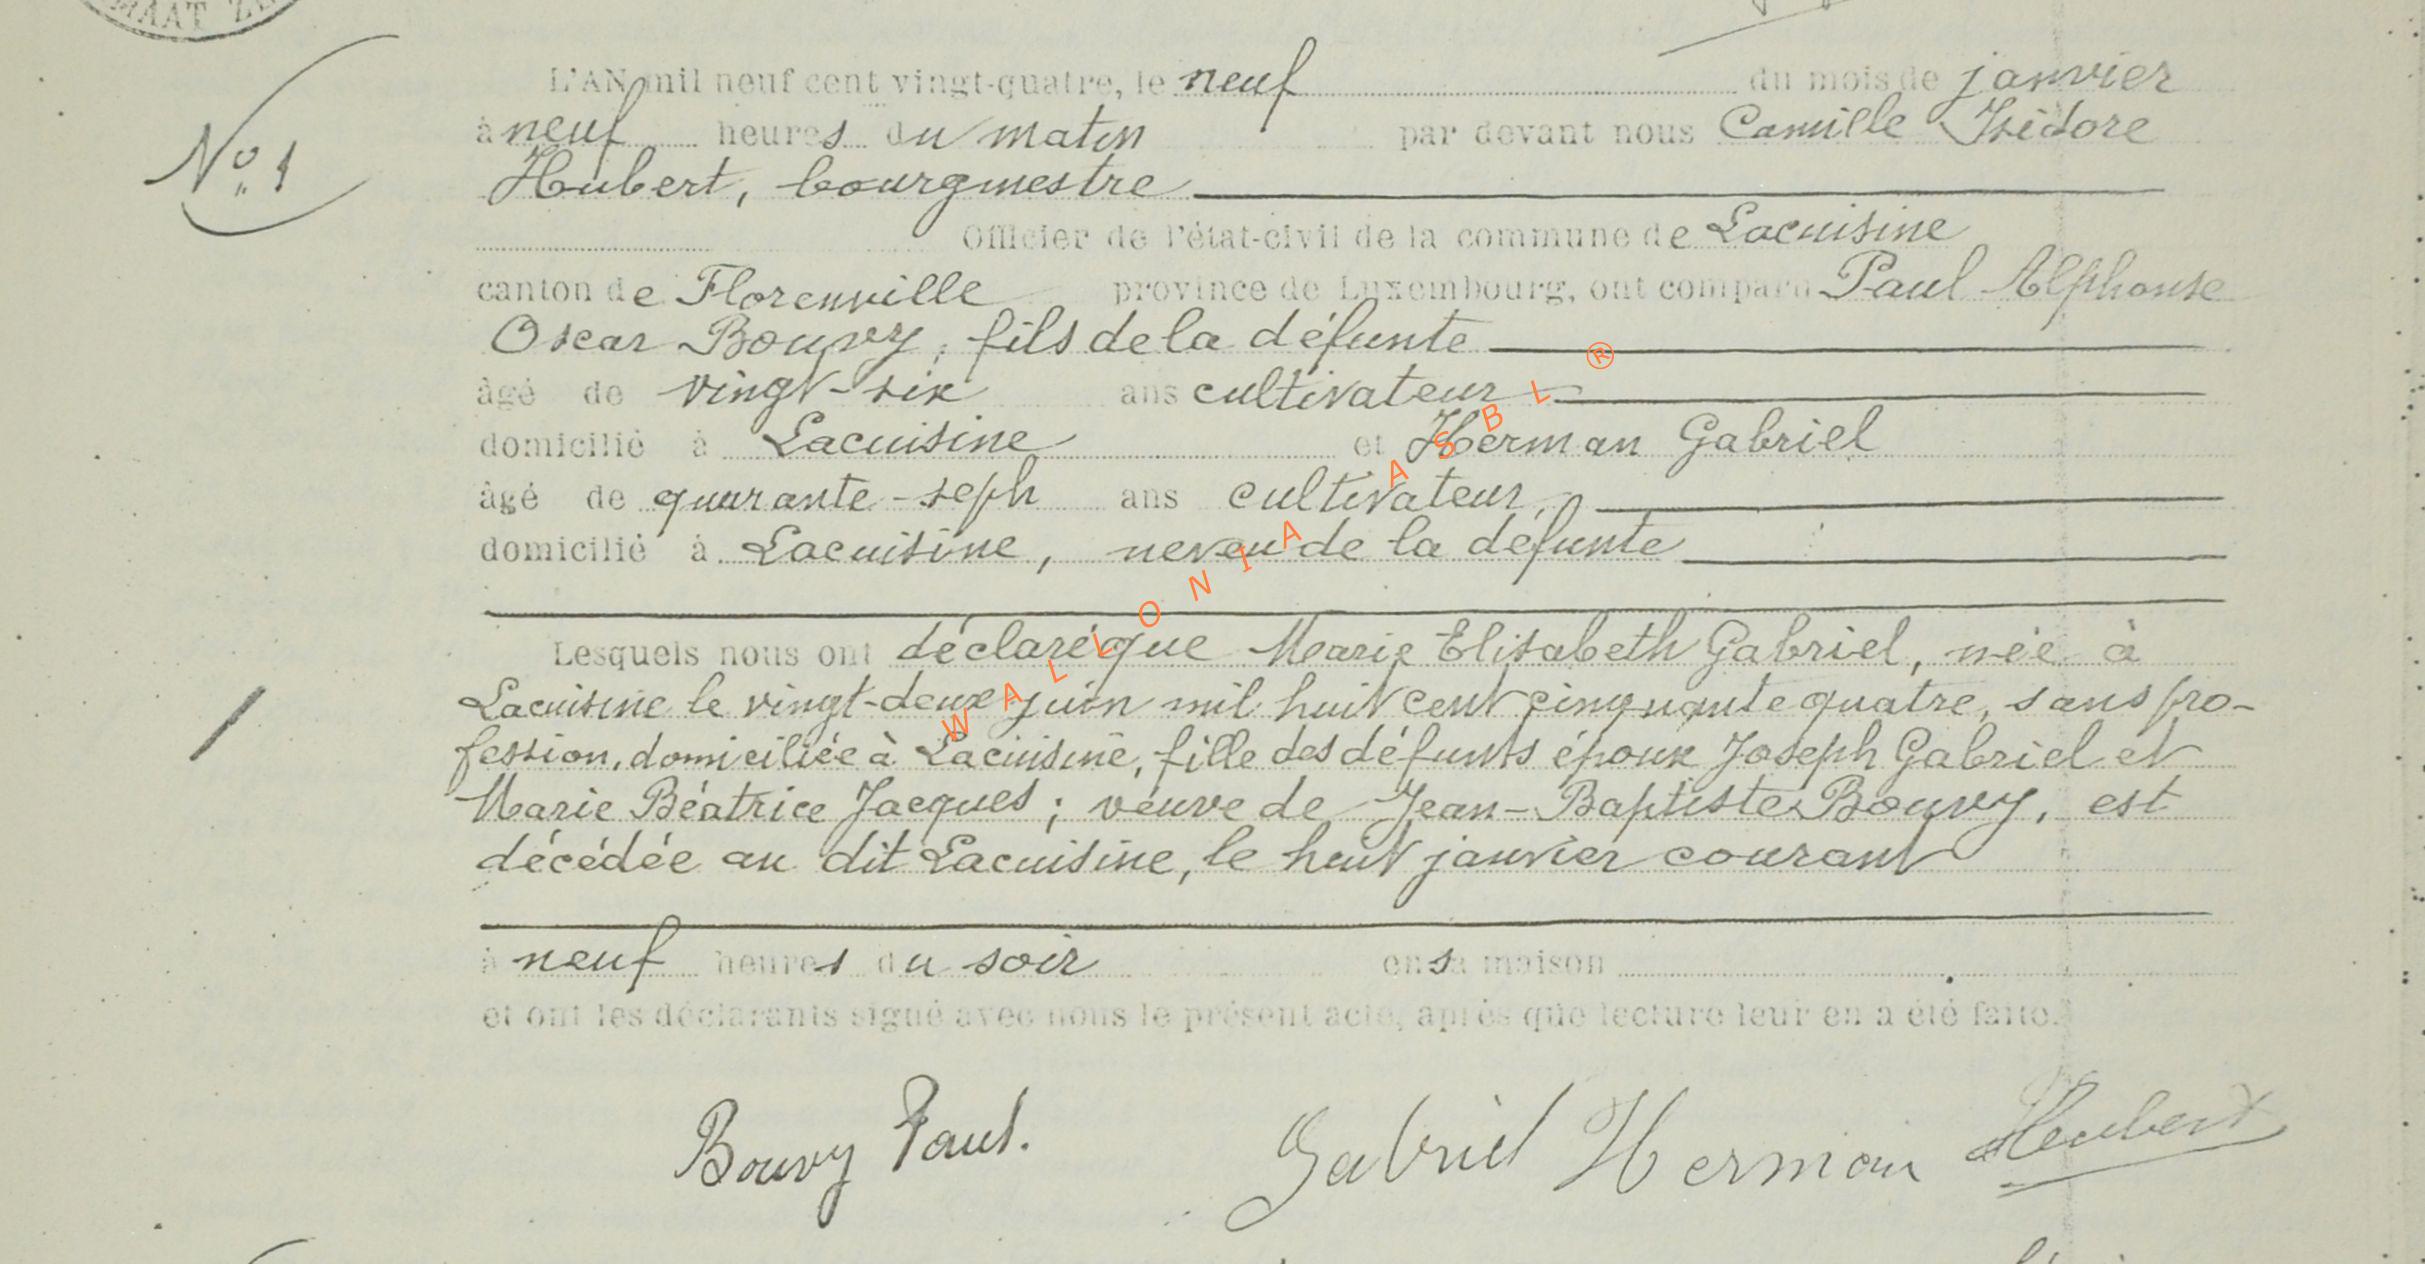 MAAT Z
L'AN mil neuf cent vingt-quatre, le neuf du mois de janvier
à neuf heures du matin par devant nous Camille Isidore
No 1
Hubert, bourgmestre
Officier de l'état-civil de la commune de Lacuisine
canton de Florenville province de Luxembourg, ont comparu Paul Alphonse
Oscar Bouvy, fils de la défunte
âgé de vingt-six ans cultivateur
domicilié à Lacuisine et Herman Gabriel
âgé de quarante-sept ans cultivateur,
domicilié à Lacuisine, neveu de la défunte
Lesquels nous ont déclaré que Marie Elisabeth Gabriel, née à
Lacuisine le vingt-deux juin mil huit cent cinquante quatre, sans pro-
fession, domiciliée à Lacuisine, fille des défunts époux Joseph Gabriel et
Marie Béatrice Jacques; veuve de Jean-Baptiste Bouvy, est
décédée au dit Lacuisine, le huit janvier courant
à neuf heures du soir en sa maison
et ont les déclarants signé avec nous le présent acte, après que lecture leur en a été faite.
Bouvy Paul. Gabriel Herman Hubert
WALLONIA ASBL ®